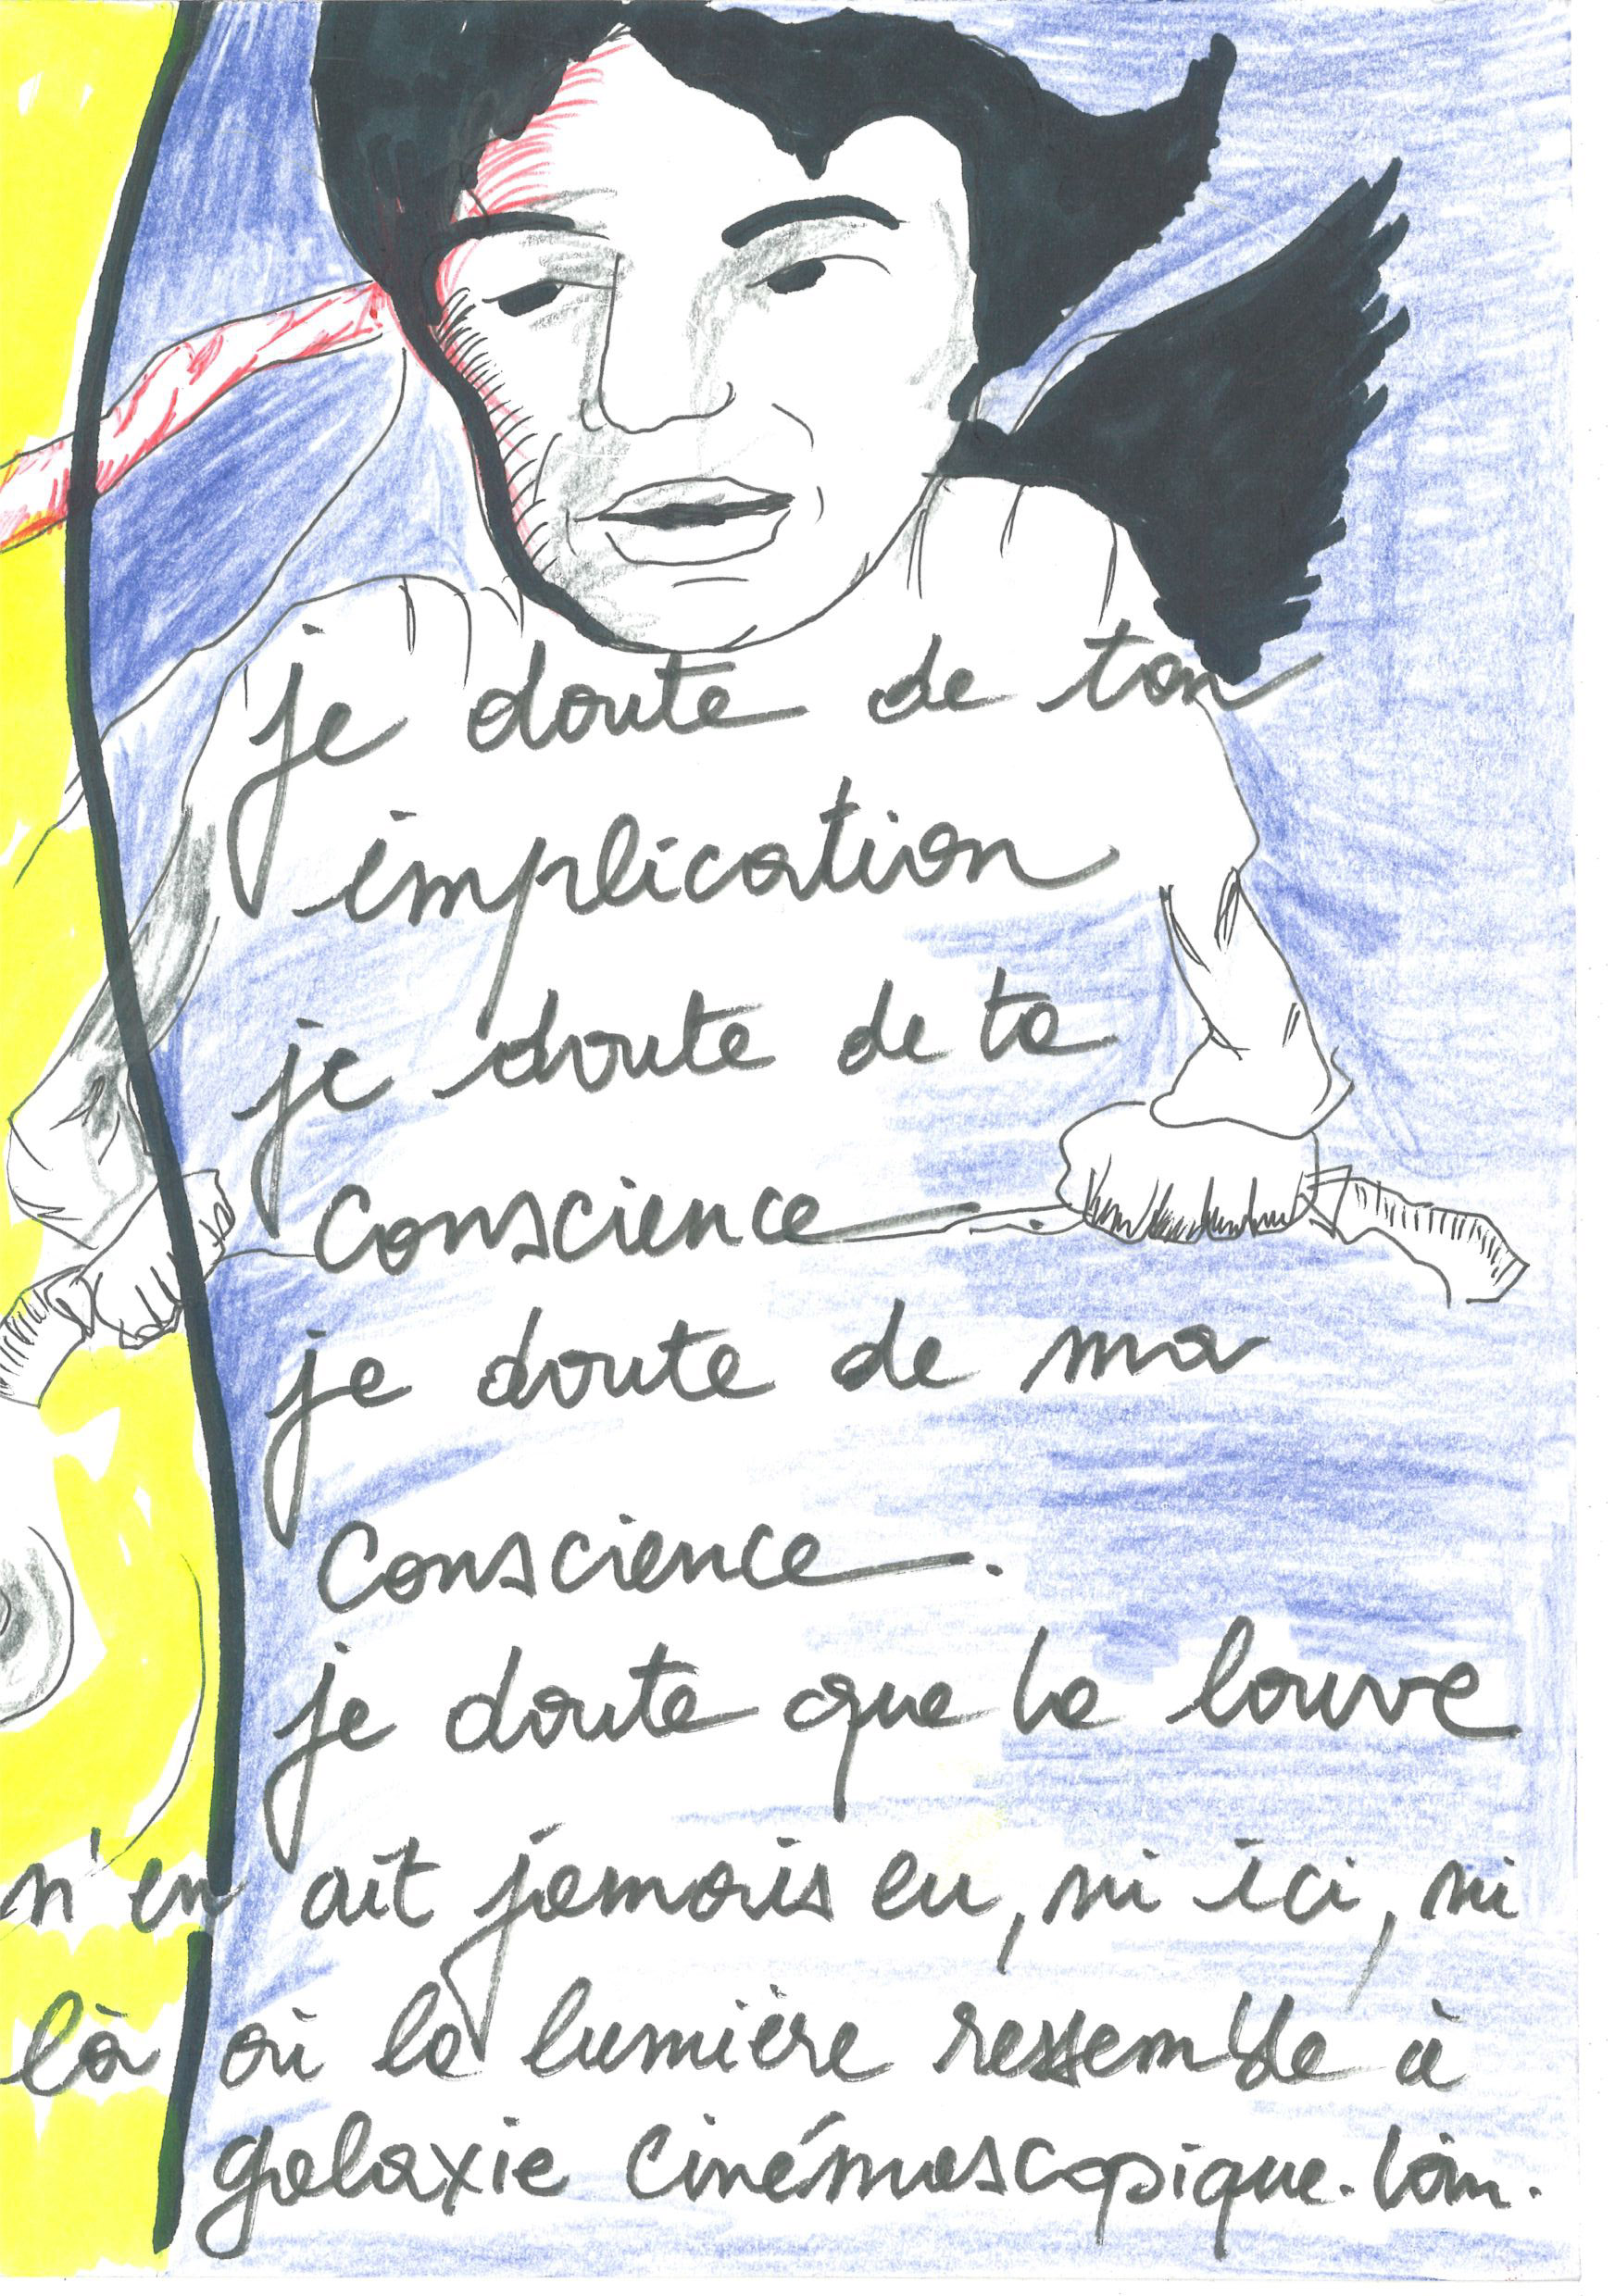 je doute de ton
implication
je doute de ta
conscience
je doute de ma
conscience.
je doute que la louve
n'en ait jamais eu, ni ici, ni
là où la lumière ressemble à
galaxie cinémascopique. loin.